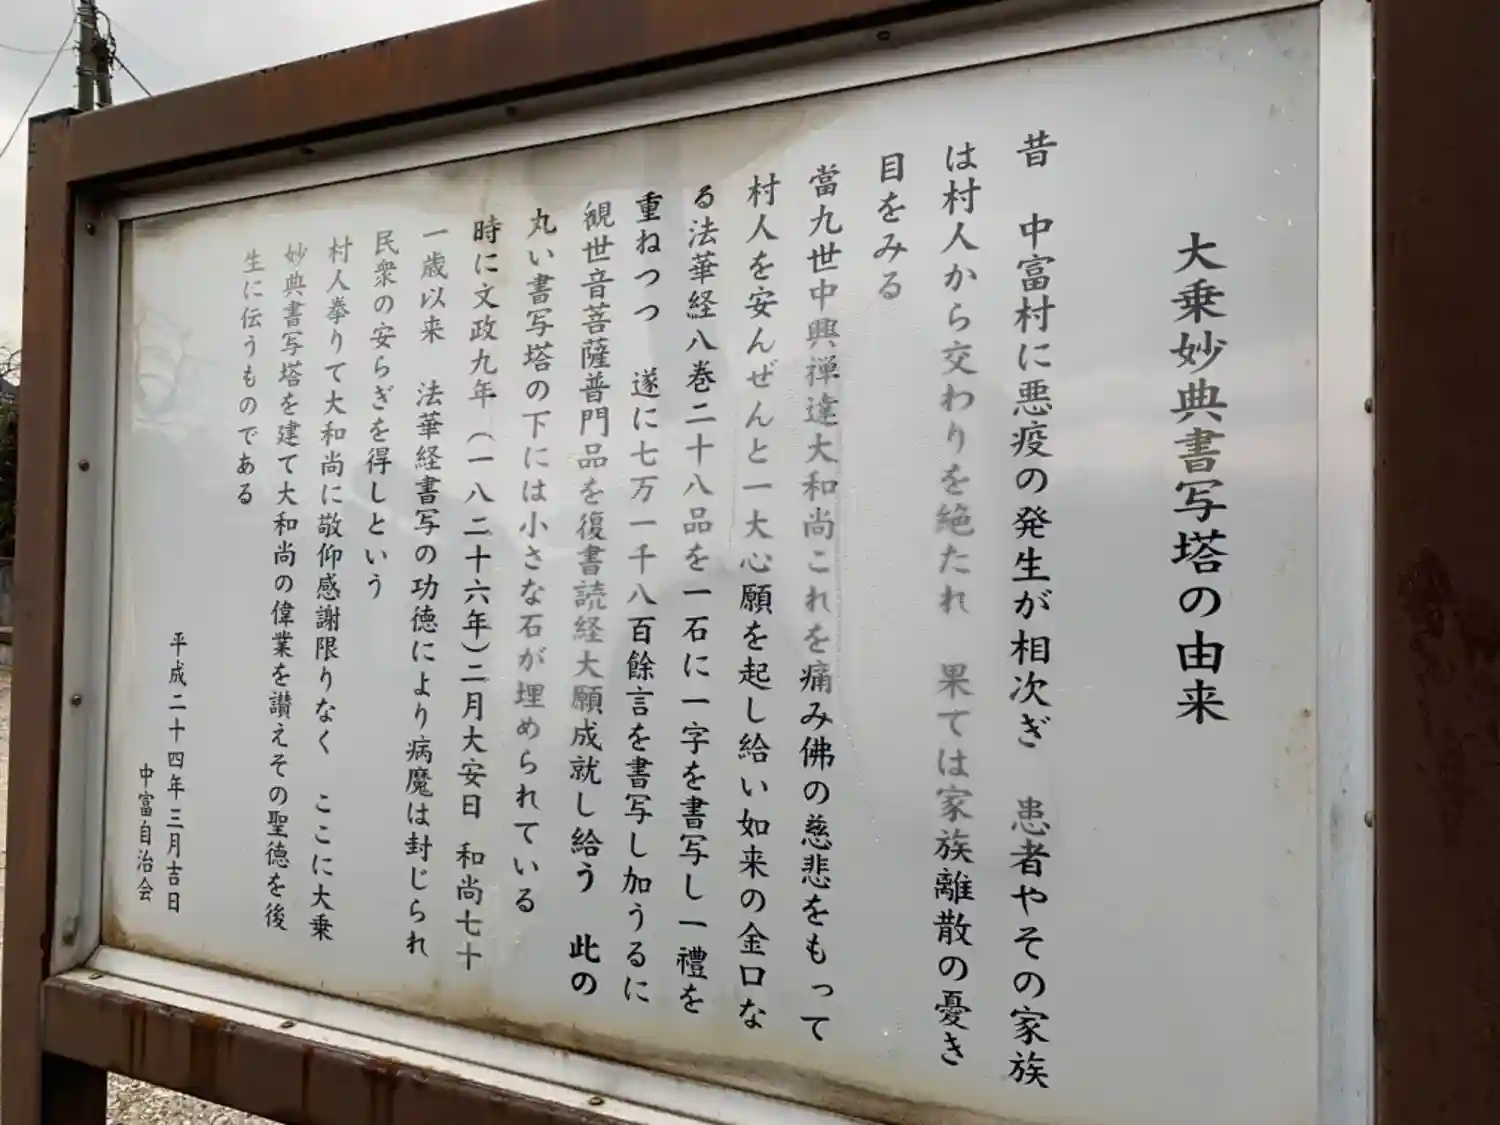 大乗妙典書写塔の由来
昔　中富村に悪疫の発生が相次ぎ　患者やその家族
は村人から交わりを絶たれ　果ては家族離散の憂き
目をみる
當九世中興禅達大和尚これを痛み佛の慈悲をもって
村人を安んぜんと一大心願を起し給い如来の金口な
る法華経八巻二十八品を一石に一字を書写し一禮を
重ねつつ　遂に七万一千八百餘言を書写し加うるに
観世音菩薩普門品を復書読経大願成就し給う　此の
丸い書写塔の下には小さな石が埋められている
時に文政九年（一八二十六年）二月大安日　和尚七十
一歳以来　法華経書写の功徳により病魔は封じられ
民衆の安らぎを得しという
村人挙りて大和尚に敬仰感謝限りなく　ここに大乗
妙典書写塔を建て大和尚の偉業を讃えその聖徳を後
生に伝うものである
平成二十四年三月吉日
中富自治会